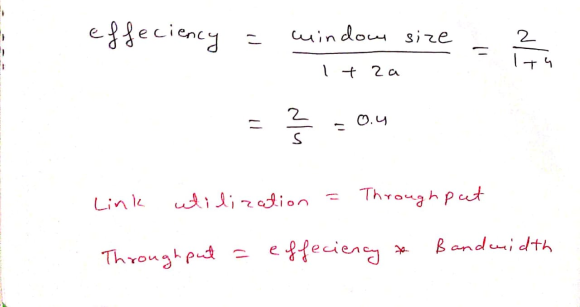 effeciency = window size / 1 + 2a = 2 / 1+4
= 2 / 5 = 0.4
Link utilization = Throughput
Throughput = effeciency * Bandwidth